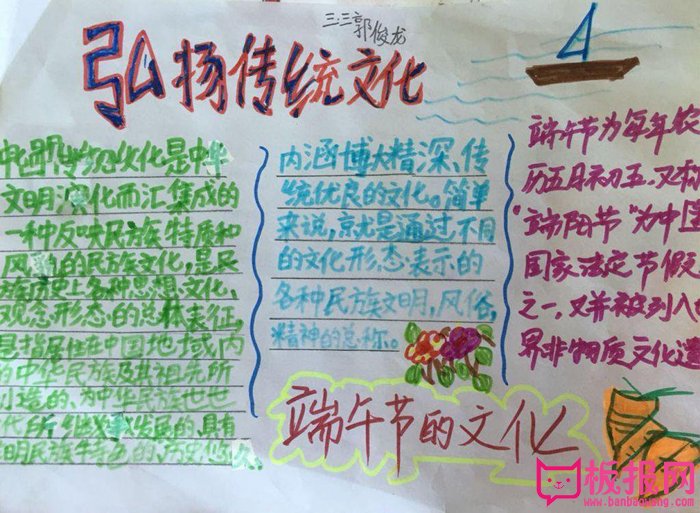 三.三郭俊龙
弘扬传统文化
中国传统文化是中华
文明演化而汇集成的
一种反映民族特质和
风貌的民族文化,是民
族历史上各种思想、文化、
观念形态的总体表征,
是指居住在中国地域内
的中华民族及其祖先所
创造的、为中华民族世世
代代所继承发展的、具有
明民族特色的、历史悠久、
内涵博大精深、传
统优良的文化。简单
来说,就是通过不同
的文化形态表示的
各种民族文明,风俗,
精神的总称。
端午节为每年农
历五月初五,又称
"端阳节"为中国
国家法定节假
之一,又并被列入
界非物质文化遗
端午节的文化
板报网
www.banbaowang.com